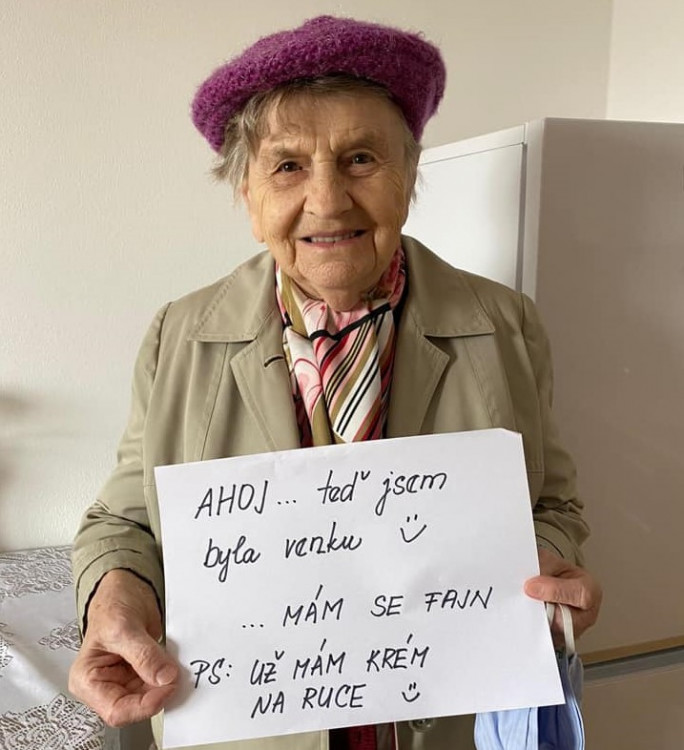 AHOJ... teď jsem
byla venku
... MÁM SE FAJN
PS: UŽ MÁM KRÉM
NA RUCE